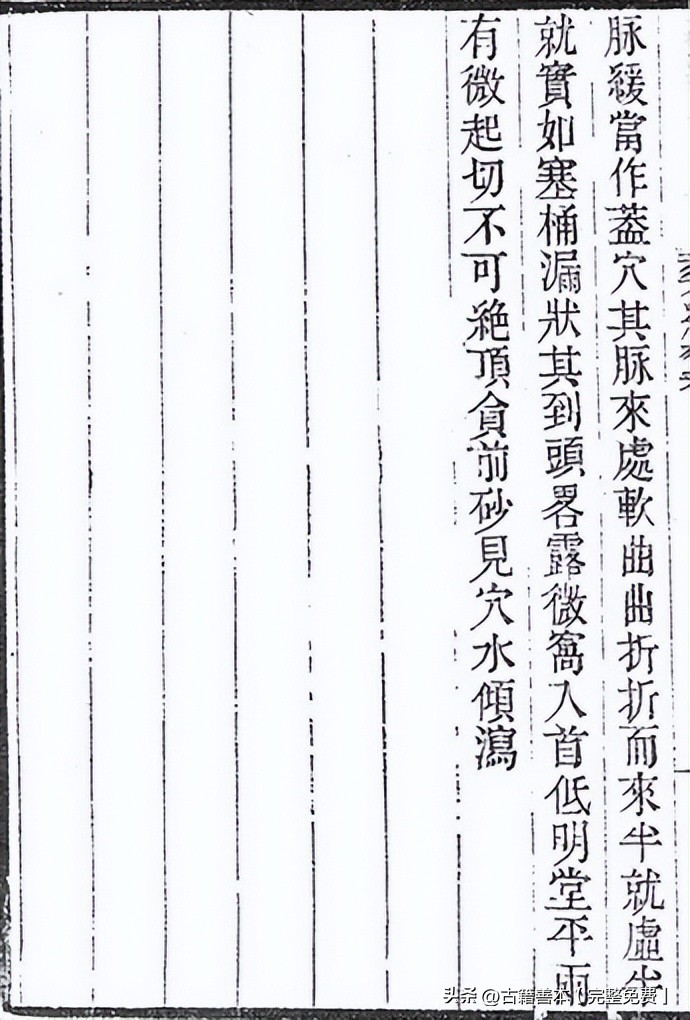 脉緩當作葢穴其脉來處軟曲曲折折而來半就虛半
就實如塞桶漏狀其到頭畧露微窩入首低明堂平兩
有微起切不可絶頂貪前砂見穴水傾瀉
头条 @古籍善本【完整免费】